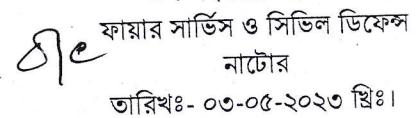 ফায়ার সার্ভিস ও সিভিল ডিফেন্স
নাটোর
তারিখঃ- ০৩-০৫-২০২৩ খ্রিঃ।